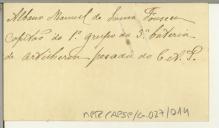 Albano Manuel de Sousa Fonseca
capitão do 1º grupo da 3ª bateria
de artilheria pesada do C.A.P.